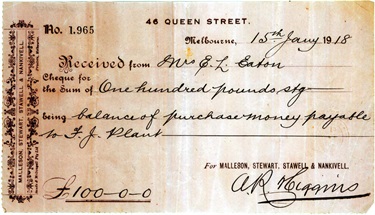 46 QUEEN STREET.
No. 1.965
Melbourne, 15th Jany 1918
Received from Mrs E. L. Eaton
Cheque for
the Sum of One hundred pounds, stg
being balance of purchase money payable
to F. J. Plant
For MALLESON, STEWART, STAWELL & NANKIVELL.
£100-0-0
A R Higgins
MALLESON, STEWART, STAWELL & NANKIVELL.